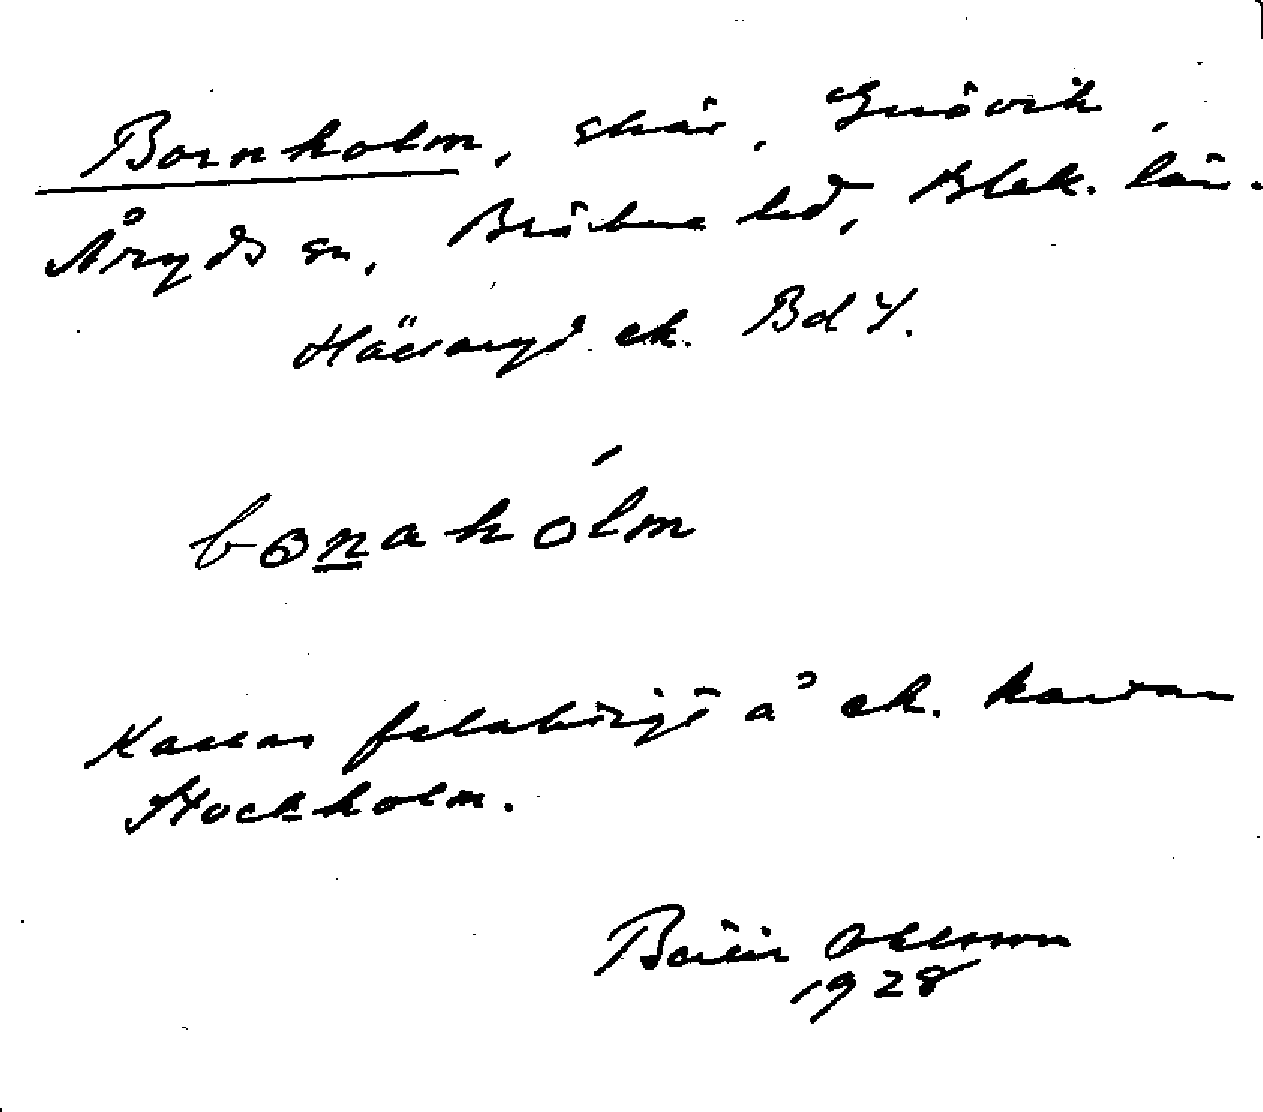 Bornholm, skär, Gnövik,
Åryds sn, Bräkne hd, Blek. län.
Hällaryd ek. Bd 4.
bonaholm
Kallas felaktigt å ek. kartan
Stockholm.
Ohlsson
1928